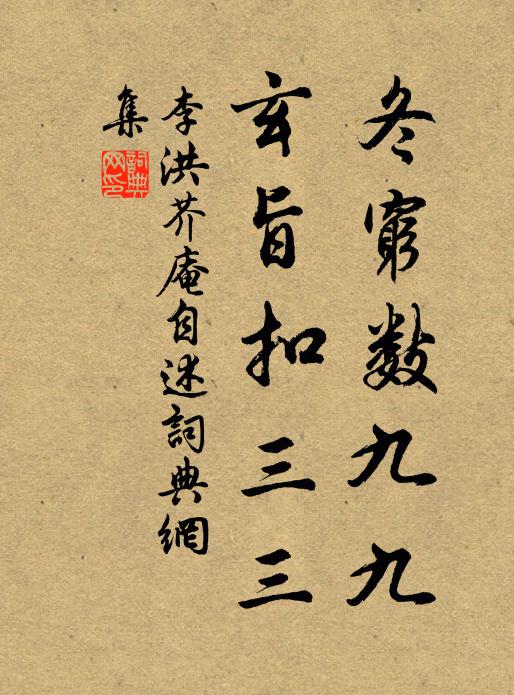 冬窮數九九
玄旨扣三三
李洪芥庵自述詞典網
集
詞典
网印